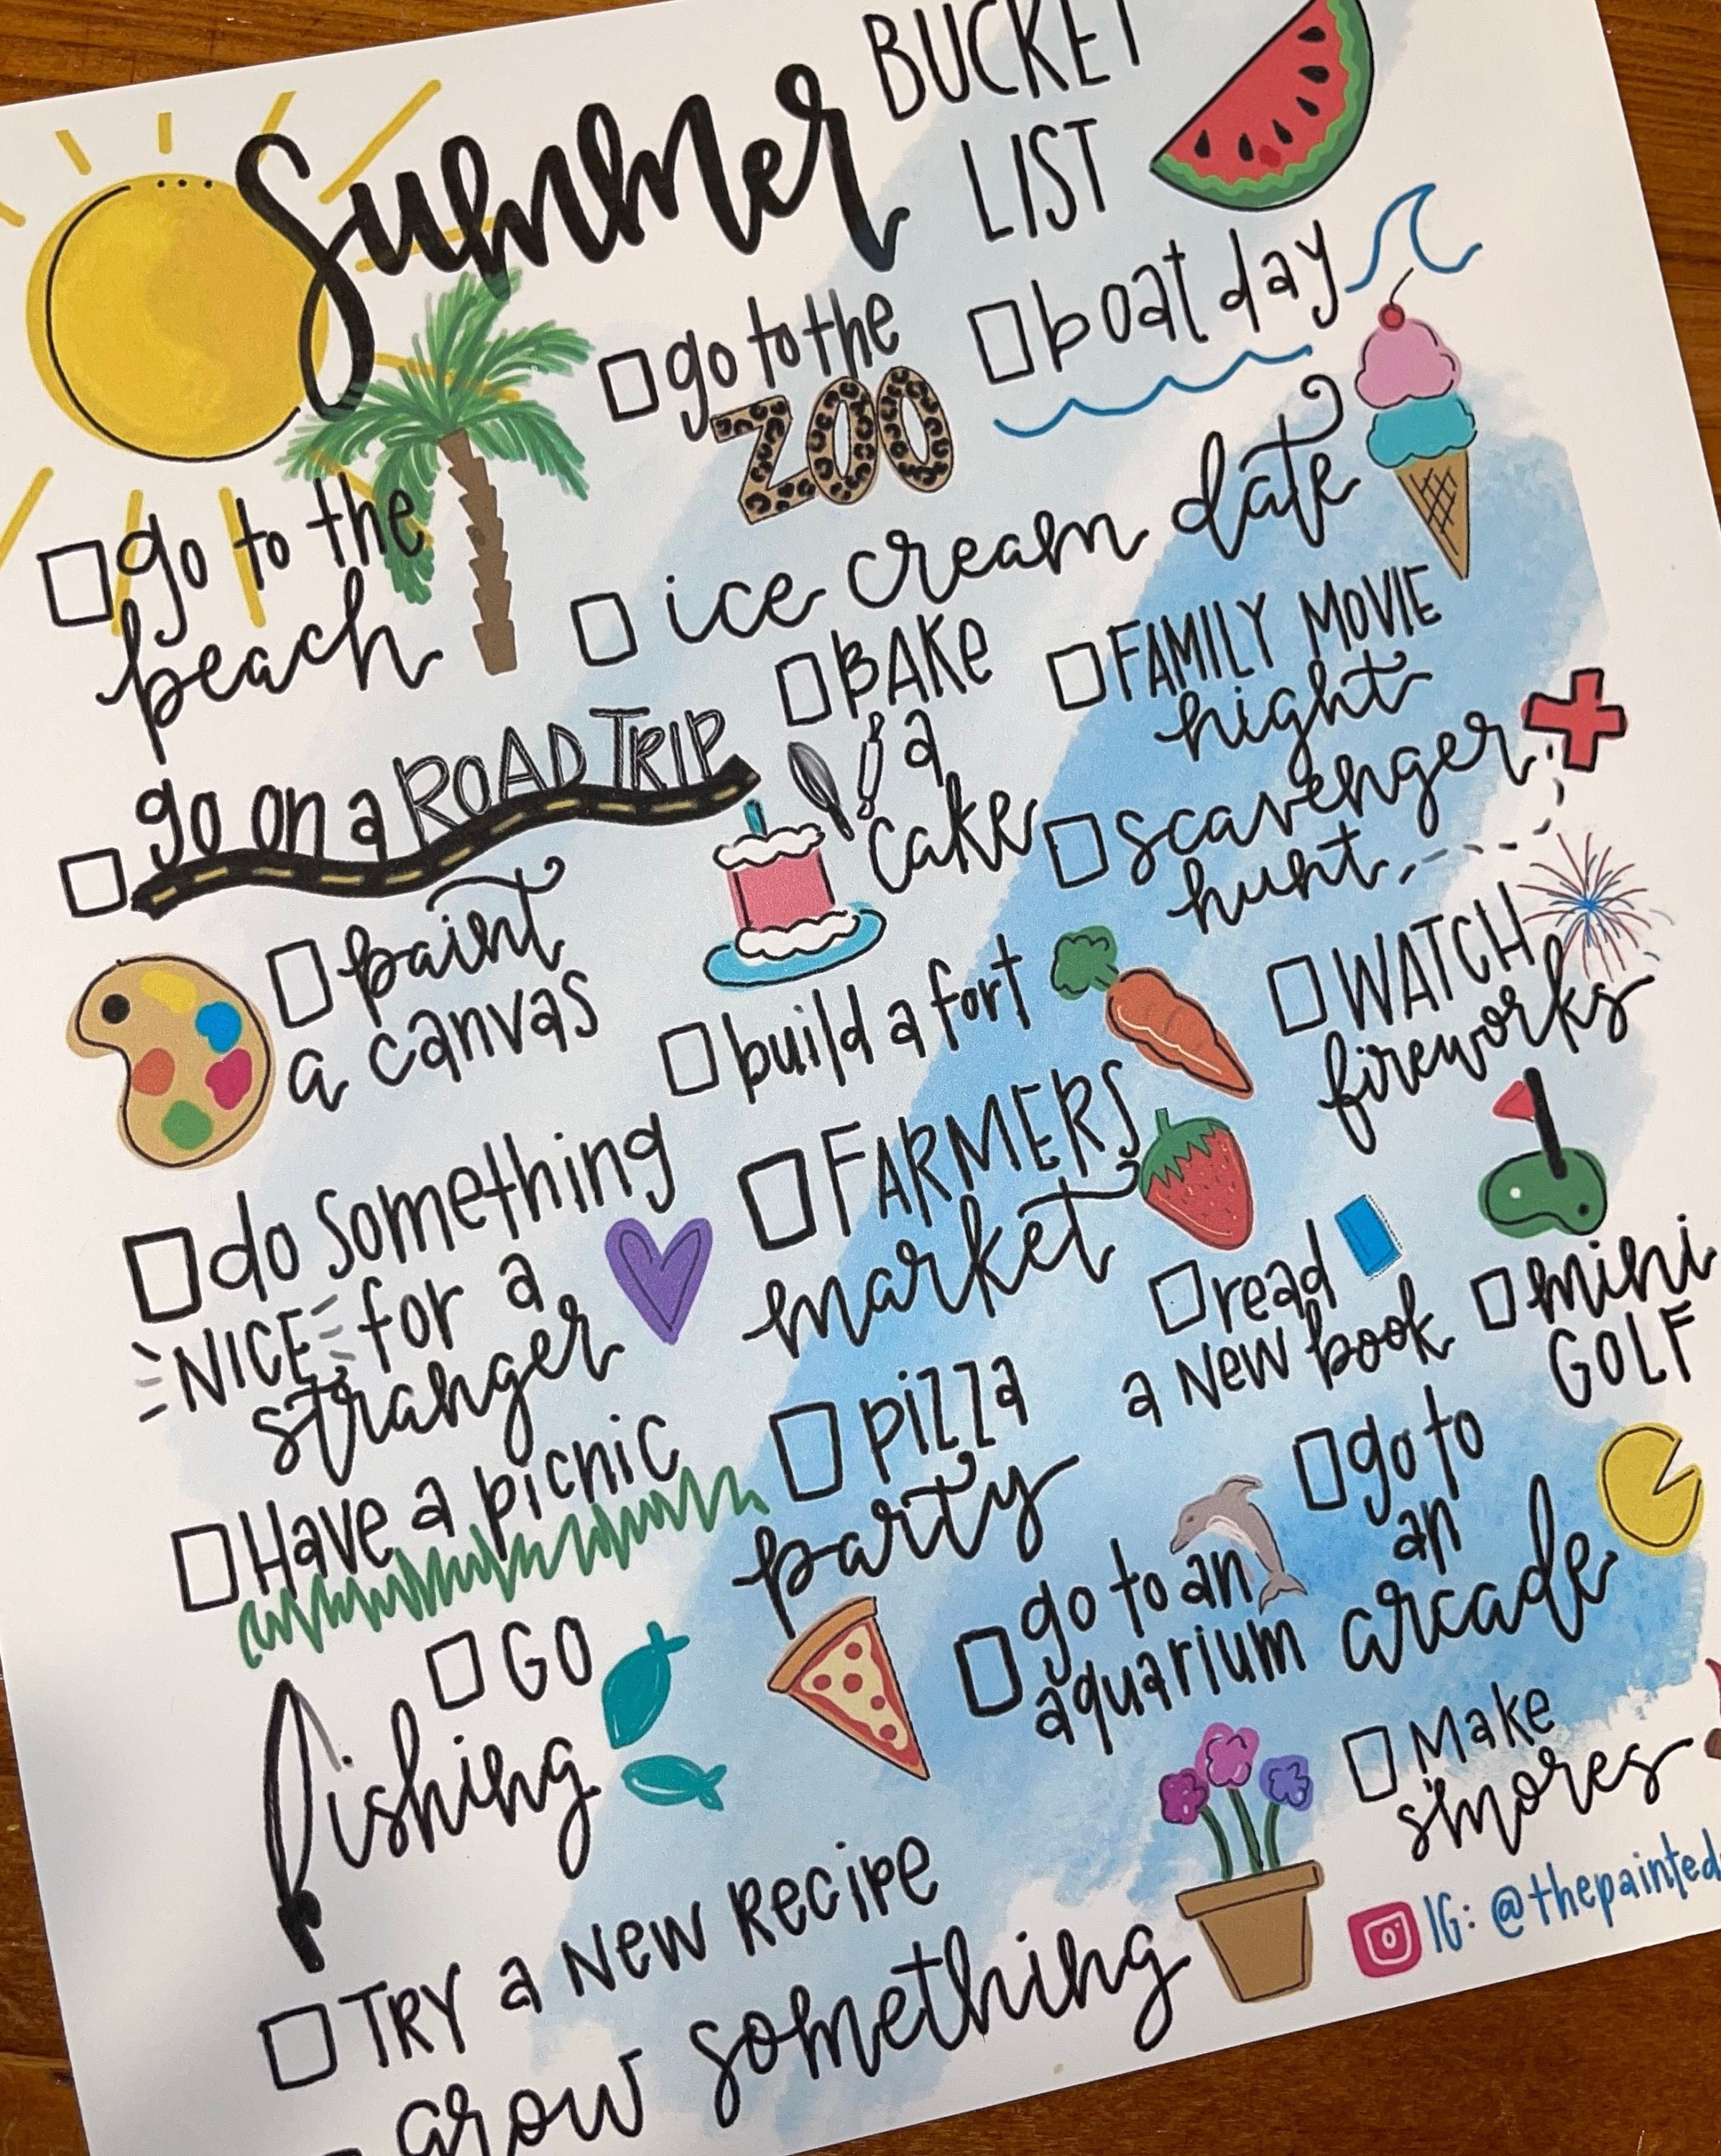 Summer BUCKET
LIST
☐ go to the
ZOO
☐ boat day
☐ go to the
beach
☐ ice cream date
☐ BAKE
a
cake
☐ FAMILY MOVIE
night
☐ go on a ROAD TRIP
☐ scavenger
hunt
☐ paint
a canvas
☐ build a fort
☐ WATCH
fireworks
☐ do something
NICE for a
stranger
☐ FARMERS
market
☐ read
a New book
☐ mini
GOLF
☐ Have a picnic
☐ pizza
party
☐ go to
an
arcade
☐ GO
fishing
☐ go to an
aquarium
☐ Make
s'mores
☐ TRY a New Recipe
grow something
IG: @thepainted